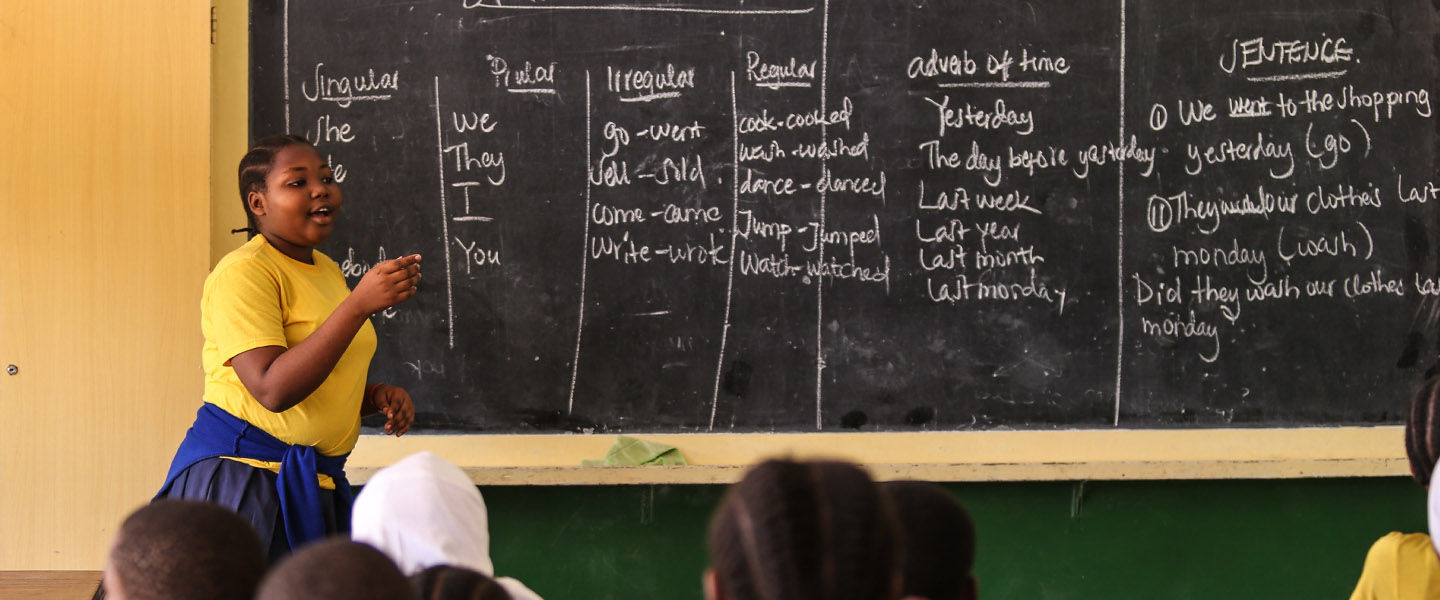 Singular
She
Plural
We
They
I
You
Irregular
go - went
Sell - Sold
Come - came
Write - wrote
Regular
cook - cooked
wash - washed
dance - danced
Jump - Jumped
Watch - watched
adverb of time
Yesterday
The day before yesterday
Last week
Last year
Last month
Last monday
SENTENCE.
(i) We went to the shopping
yesterday (go)
(ii) They washed our clothes Last
monday (wash)
Did they wash our clothes Last
monday